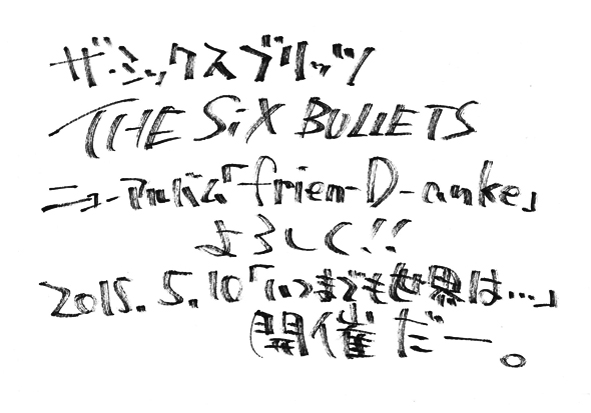 ザ・シックスブリッツ
THE SiX BULLETS
ニューアルバム「frien-D-anke」
よろしく!!
2015.5.10「いつまでも世界は…」
開催だー。